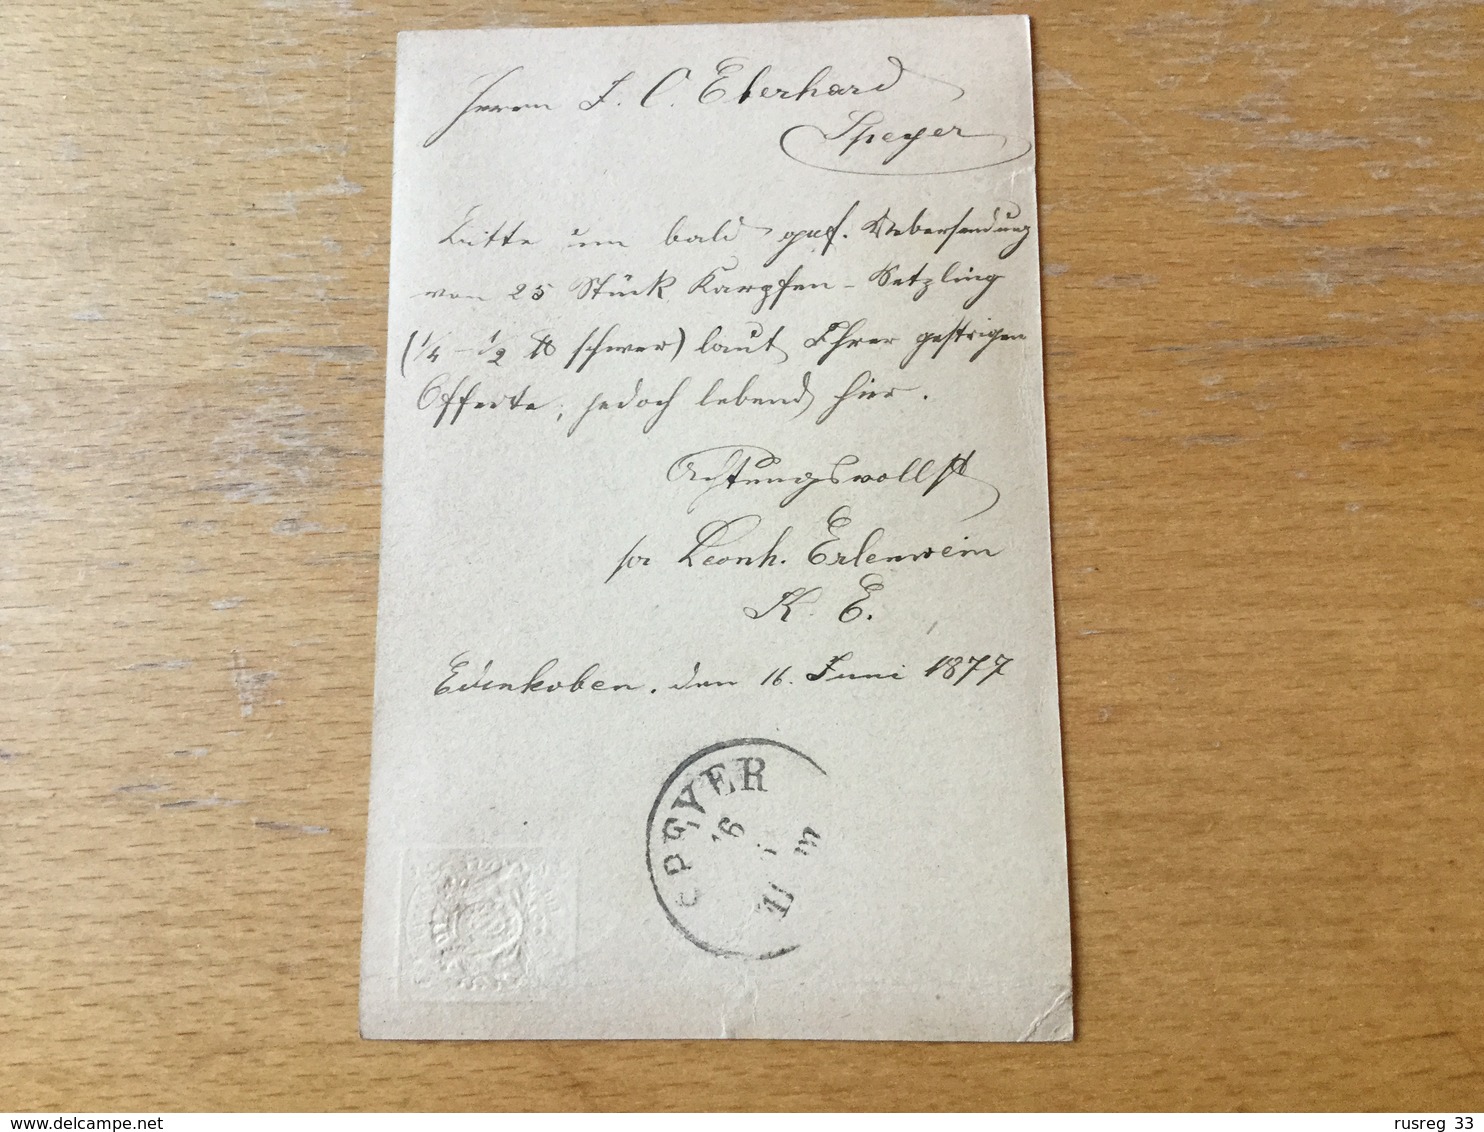 Herrn J. C. Eberhard
Speyer
Bitte um bald gef. Uebersendung
von 25 Stück Karpfen-Setzling
(1/4 - 1/2 ℔ schwer) laut Ihrer gestrigen
Offerte, jedoch lebend hier.
Achtungsvollst
pr Leonh. Erlenwein
K. E.
Edenkoben, den 16. Juni 1877
SPEYER
16
rusreg 33